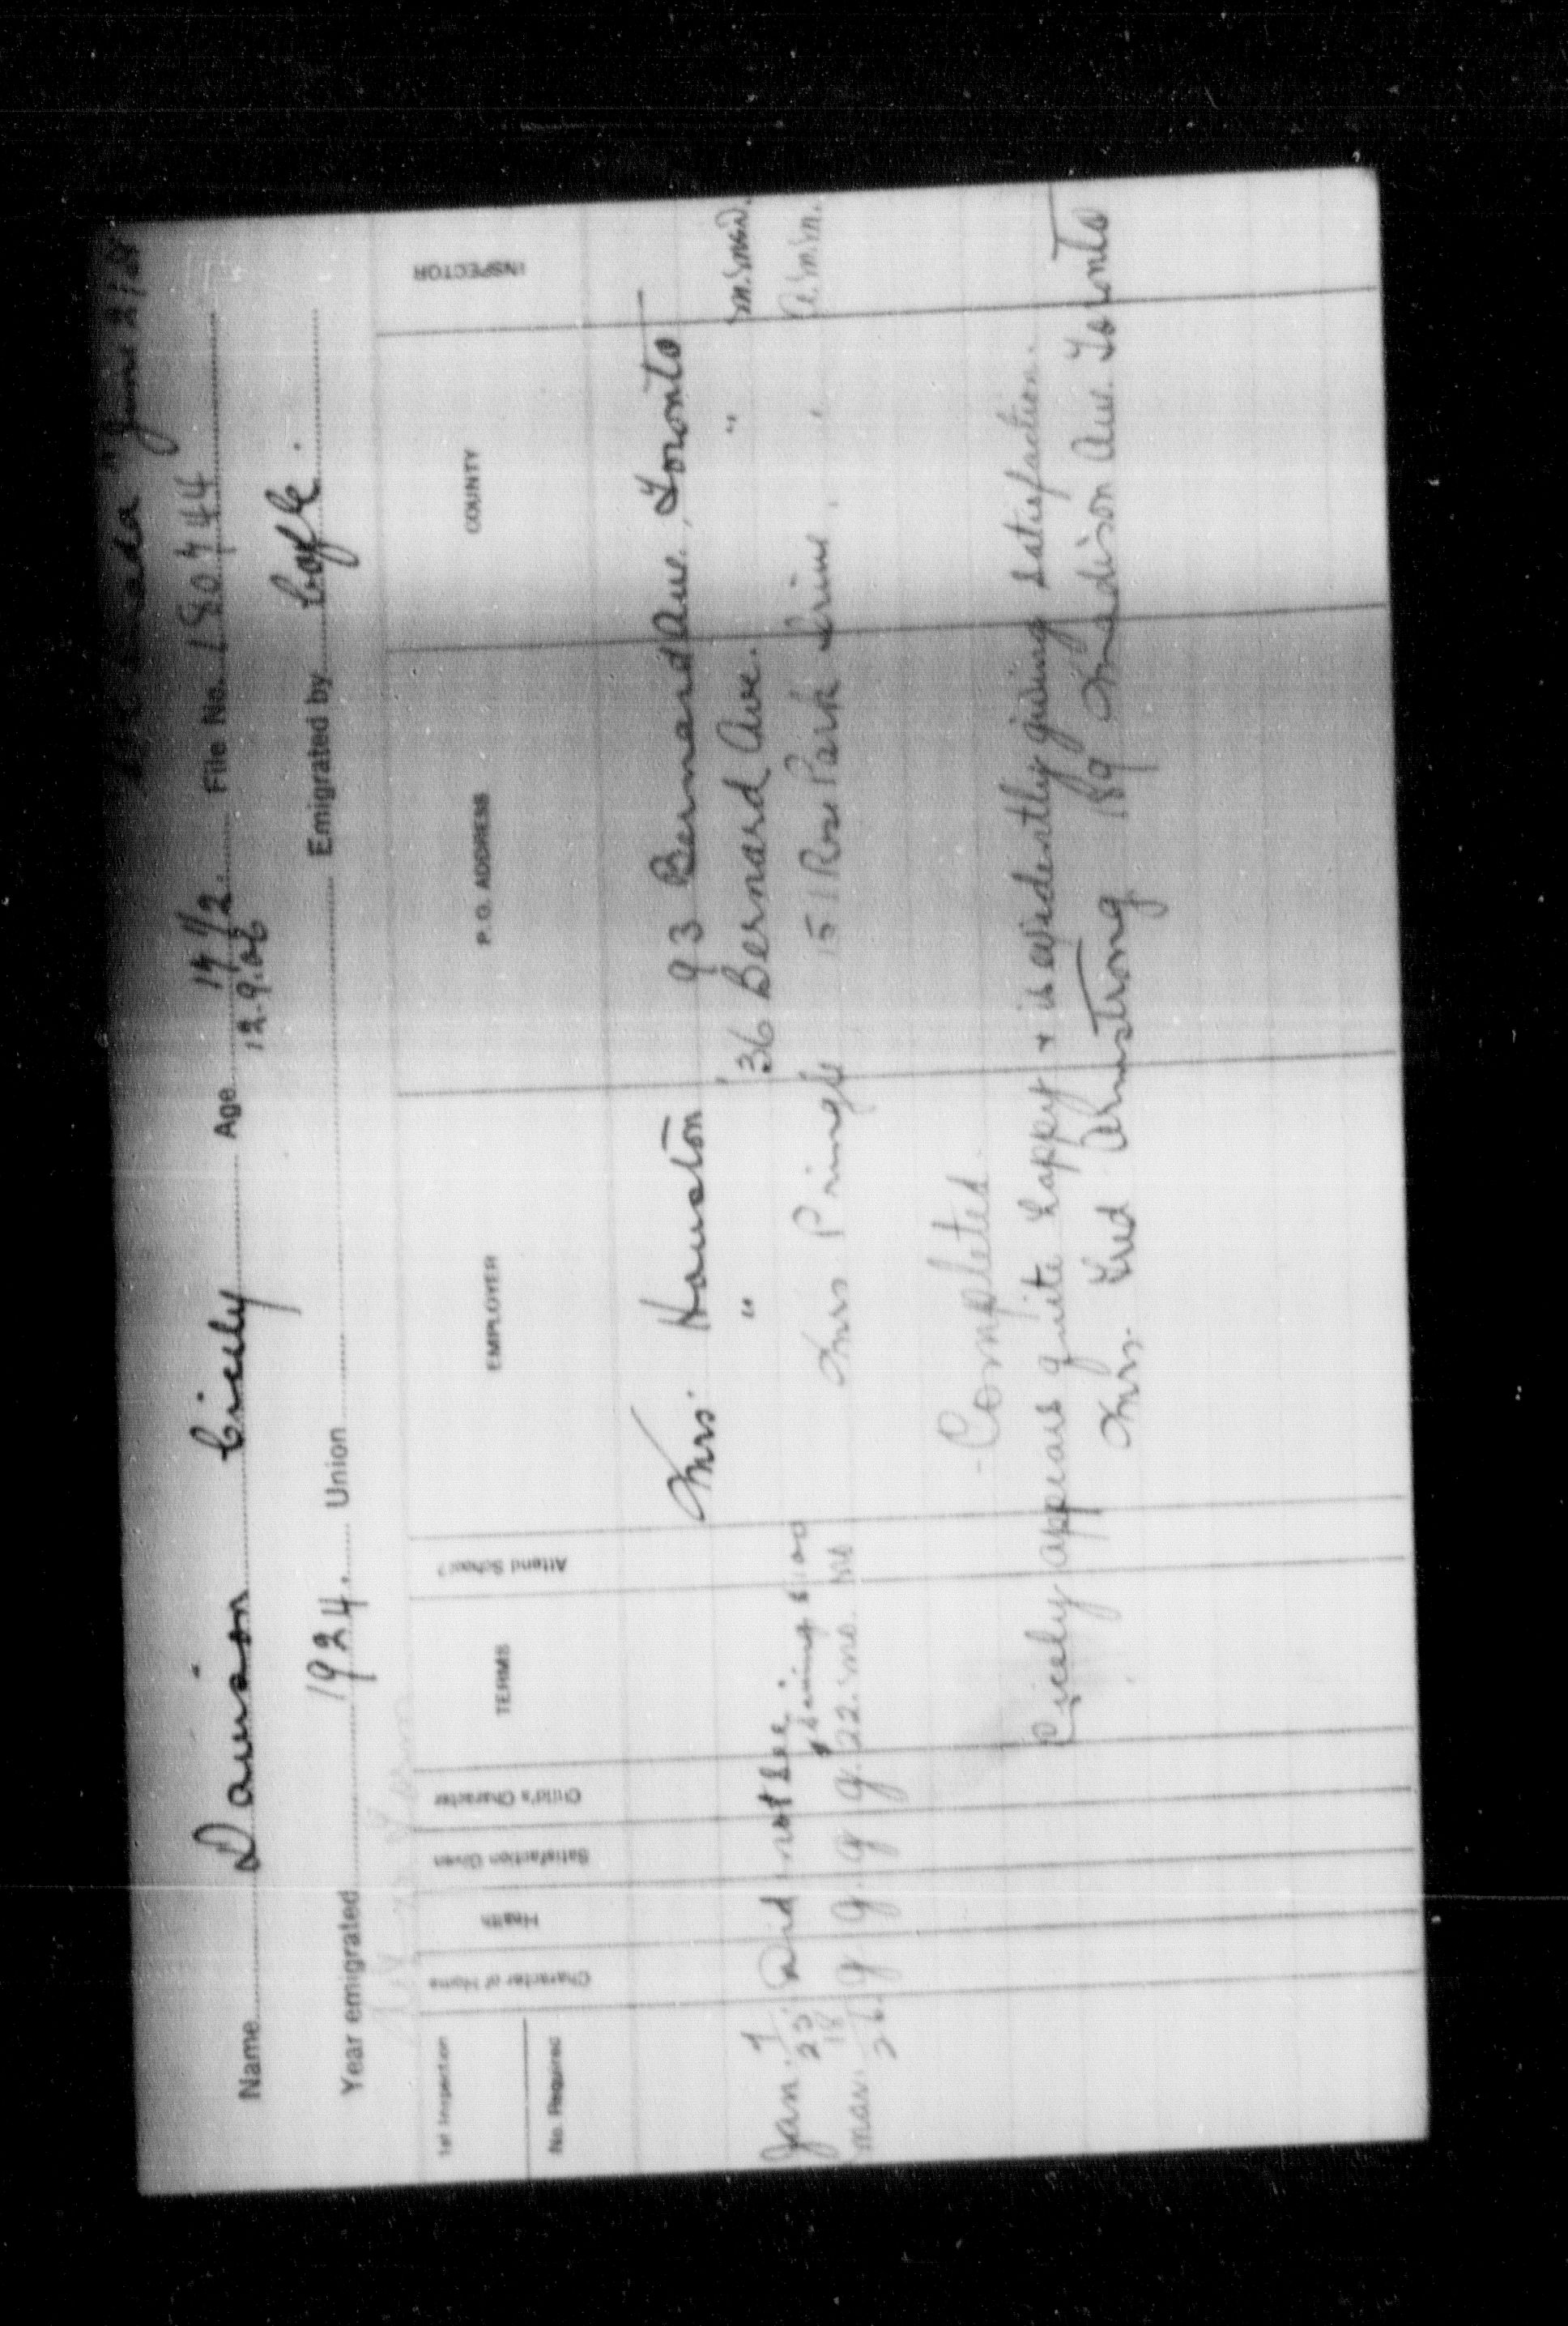 June 21/24
Name Davison Cicely Age 17 1/2 File No. 180744
12.9.06
Year emigrated 1924. Union Emigrated by Cofle.
1st Inspection
No. Required
Character of Home
Health
Satisfaction Given
Child's Character
TERMS
Attend School?
EMPLOYER
P.O. ADDRESS
COUNTY
INSPECTOR
Mrs. Houston 93 Bernard Ave. Toronto
Jan. 7/25. Did not see. " 36 Bernard Ave. "
Mar. 18/26 g g g g 22. mo. no Mrs. Pringle 51 Rose Park Drive "
- Completed.
Cicely appears quite happy & is evidently giving satisfaction.
Mrs. Fred Armstrong 189 Madison Ave. Toronto